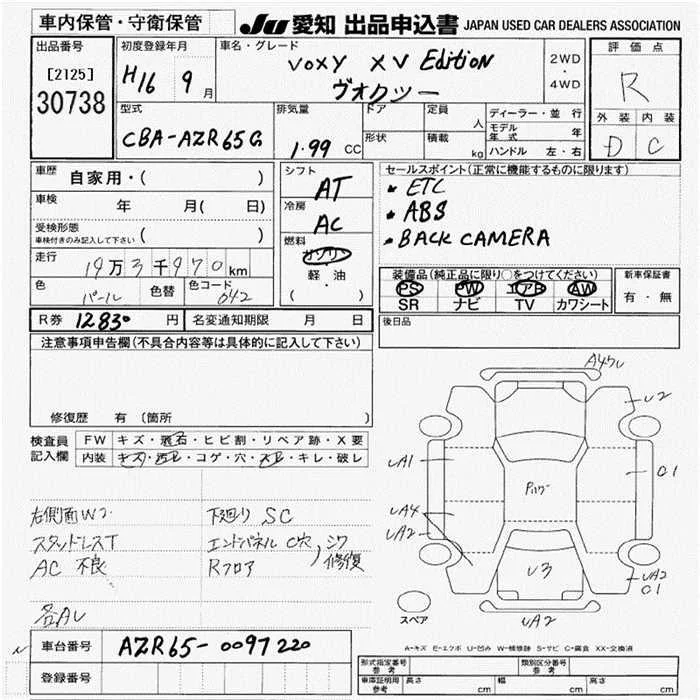 車内保管・守衛保管
JU 愛知 出品申込書 JAPAN USED CAR DEALERS ASSOCIATION
出品番号
[2125]
30738
初度登録年月
H16 9月
車名・グレード
VOXY XV Edition
ヴォクシー
2WD
・
4WD
評価点
R
外装 内装
D C
型式
CBA-AZR65G
排気量
1.99 CC
ドア
形状
定員 人
積載 kg
ディーラー・並行
モデル年式 年
ハンドル 左・右
車歴 自家用・( )
車検 年 月( 日)
受検形態
車検付きのみ記入して下さい ( )
走行 19万3千970km
色 パール 色替 色コード 042
シフト
AT
冷房
AC
燃料
ガソリン
軽・油
( )
セールスポイント(正常に機能するものに限ります)
・ETC
・ABS
・BACK CAMERA
装備品(純正品に限り○をつけてください)
PS PW エアB AW
SR ナビ TV カワシート
新車保証書
有・無
R券 12830 円 名変通知期限 月 日
後日品
注意事項申告欄(不具合内容等は具体的に記入して下さい)
修復歴 有 (箇所 )
検査員
記入欄
FW キズ・飛石・ヒビ割・リペア跡・X要
内装 キズ・汚レ・コゲ・穴・スレ・キレ・破レ
右側面W2
スタッドレスT
AC 不良
各AU
下廻り SC
エンドパネル C穴
Rフロア
シワ
修復
U2
UA1
C1
UA4
UA2
U3
UA2
C1
UA2
スペア
A=キズ E=エクボ U=凹み W=補修跡 S=サビ C=腐食 XX=交換済
車台番号 AZR65-0097220
登録番号
型式指定番号
参考
類別区分番号
参考
車庫証明用
参考
長さ cm 幅 cm 高さ cm